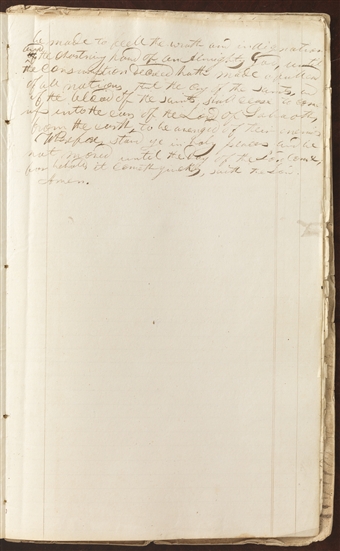 be made to feel the wrath and indignation
the Chastning hand of an Almighty God, until
the Consumption decreed hath made a full end
of all nations, that the cry of the Saints, and
of the blood of the Saints, shall cease to come
up into the ears of the Lord of Sabaoth,
from the earth, to be avenged of their enemies
Wherefore, stand ye in holy places and be
not moved, until the day of the Lord come,
for behold it cometh quickly, saith the Lord
Amen.